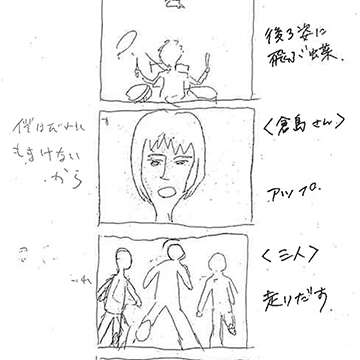 後ろ姿に
飛ぶ野菜.
僕はだれに
もまけない
から
<倉島さん>
アップ.
<三人>
走りだす